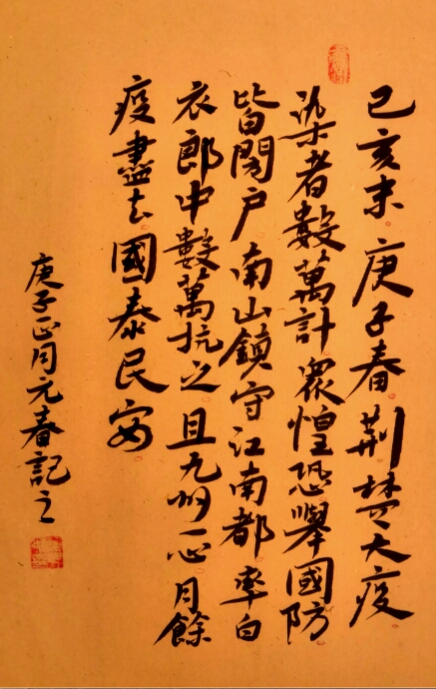 己亥末庚子春荆楚大疫
染者數萬計眾惶恐舉國防
皆閉户南山鎮守江南都率白
衣郎中數萬抗之且九州一心月餘
疫盡去國泰民安
庚子正月元春記之